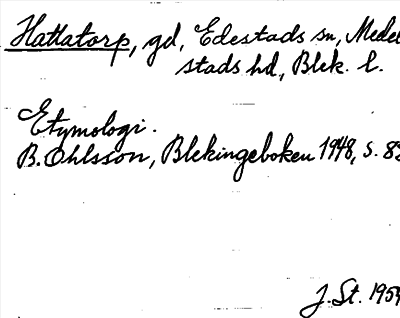 Hattatorp, gd, Edestads sn, Medel
stads hd, Blek. l.
Etymologi.
B. Ohlsson, Blekingeboken 1948, s. 83
J. St. 1954